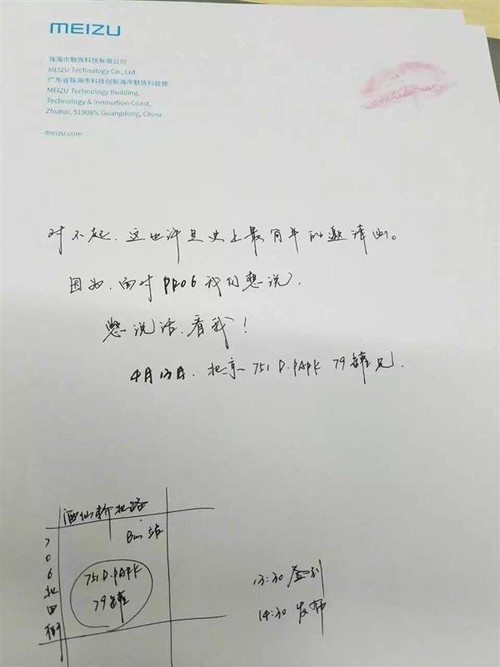 MEIZU
珠海市魅族科技有限公司
MEIZU Technology Co., Ltd.
广东省珠海市科技创新海岸魅族科技楼
MEIZU Technology Building,
Technology & Innovation Coast,
Zhuhai, 519085, Guangdong, China
meizu.com
对不起,这也许是史上最简单的邀请函。
因为,面对PRO6我们想说,
憋说话,看我!
4月13日,北京 751 D.PARK 79罐见.
酒仙桥北路
Bus站
706北四街
751.D.PARK
79罐
13:30 签到
14:30 发布